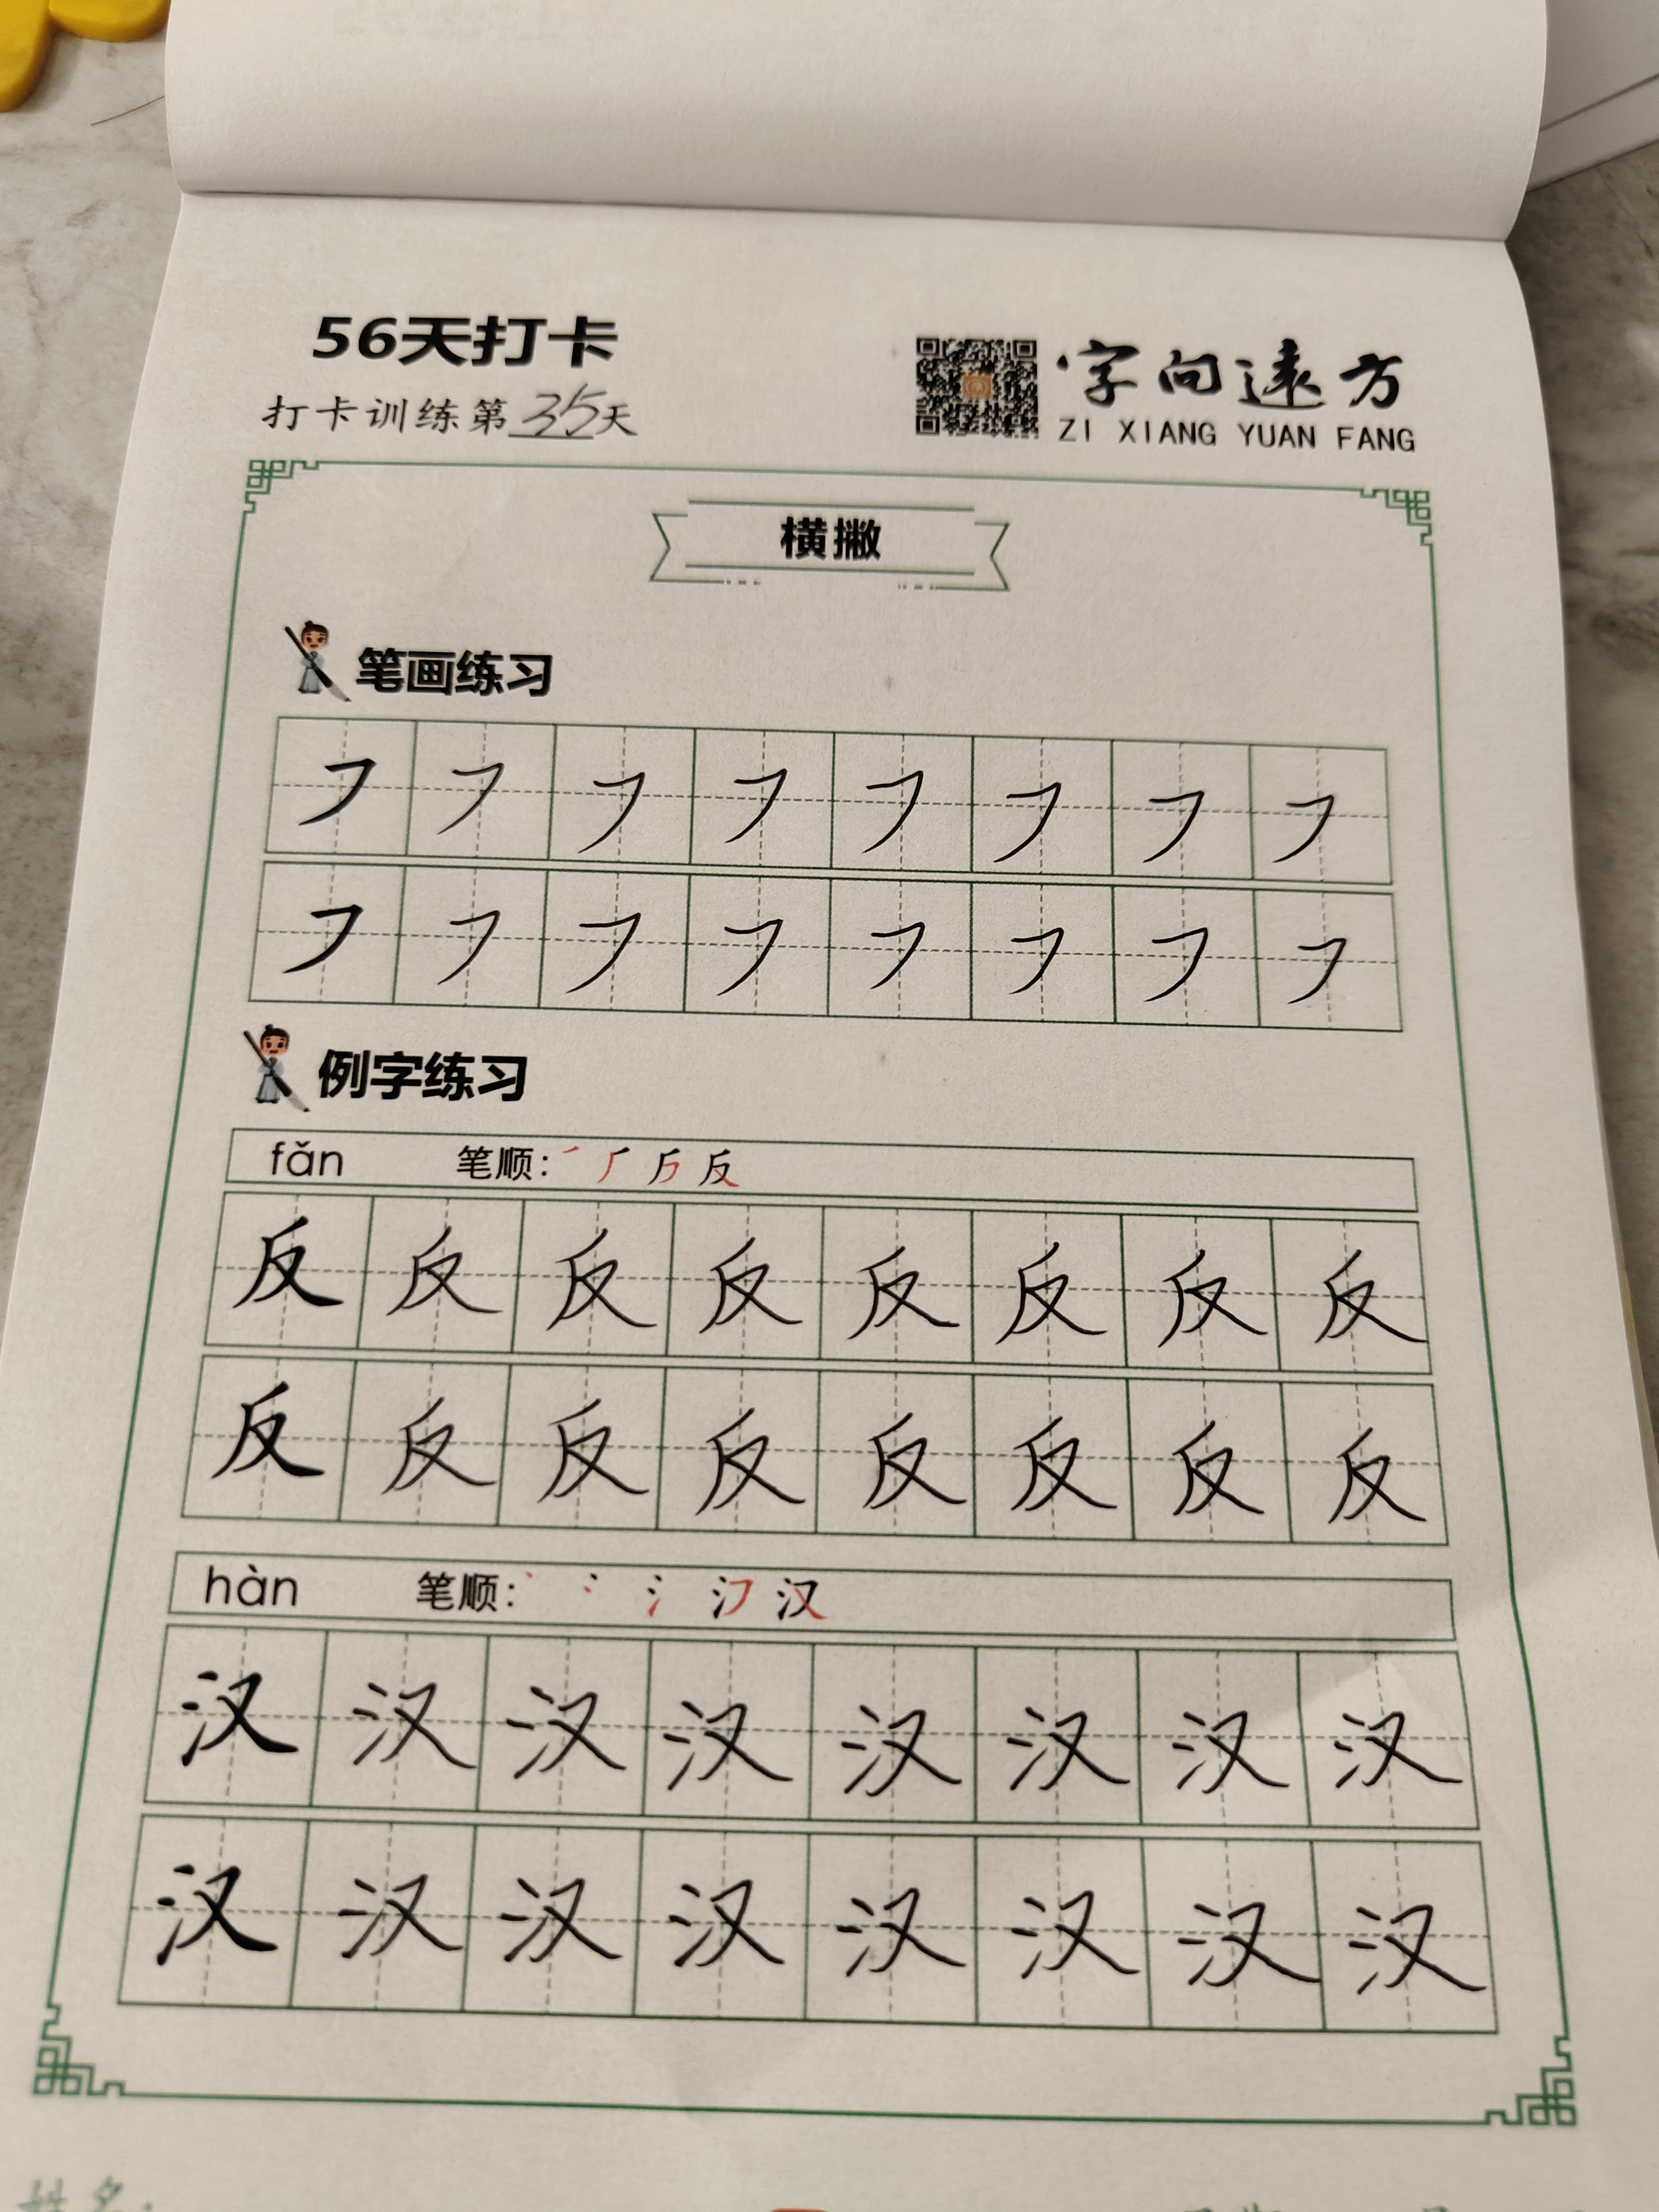 56天打卡
打卡训练第35天
字向远方
ZI XIANG YUAN FANG
横撇
笔画练习
㇇ ㇇ ㇇ ㇇ ㇇ ㇇ ㇇ ㇇
㇇ ㇇ ㇇ ㇇ ㇇ ㇇ ㇇ ㇇
例字练习
fǎn 笔顺: 反
反 反 反 反 反 反 反 反
反 反 反 反 反 反 反 反
hàn 笔顺: 汉
汉 汉 汉 汉 汉 汉 汉 汉
汉 汉 汉 汉 汉 汉 汉 汉
姓名: